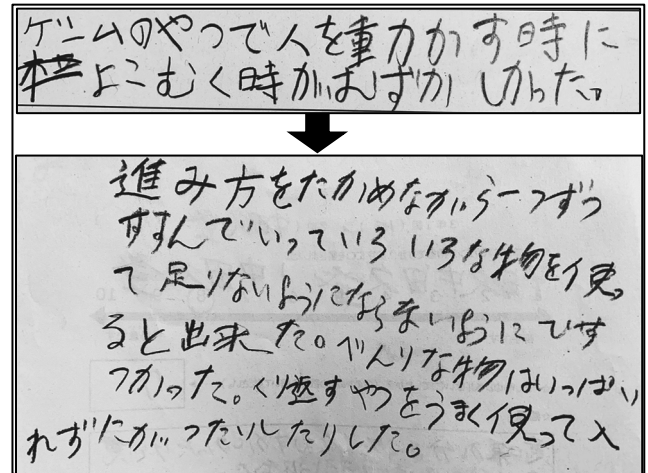 ゲームのやつで人を重力かす時に
よこむく時がむずかしかった。
進み方をたかめながら一つずつ
すすんでいっていろいろな物を使っ
て足りないようにならないようにす
ると出来た。べんりな物はいっぱい
つかった。くり返すやつをうまく使って入
れず たりしたりした。